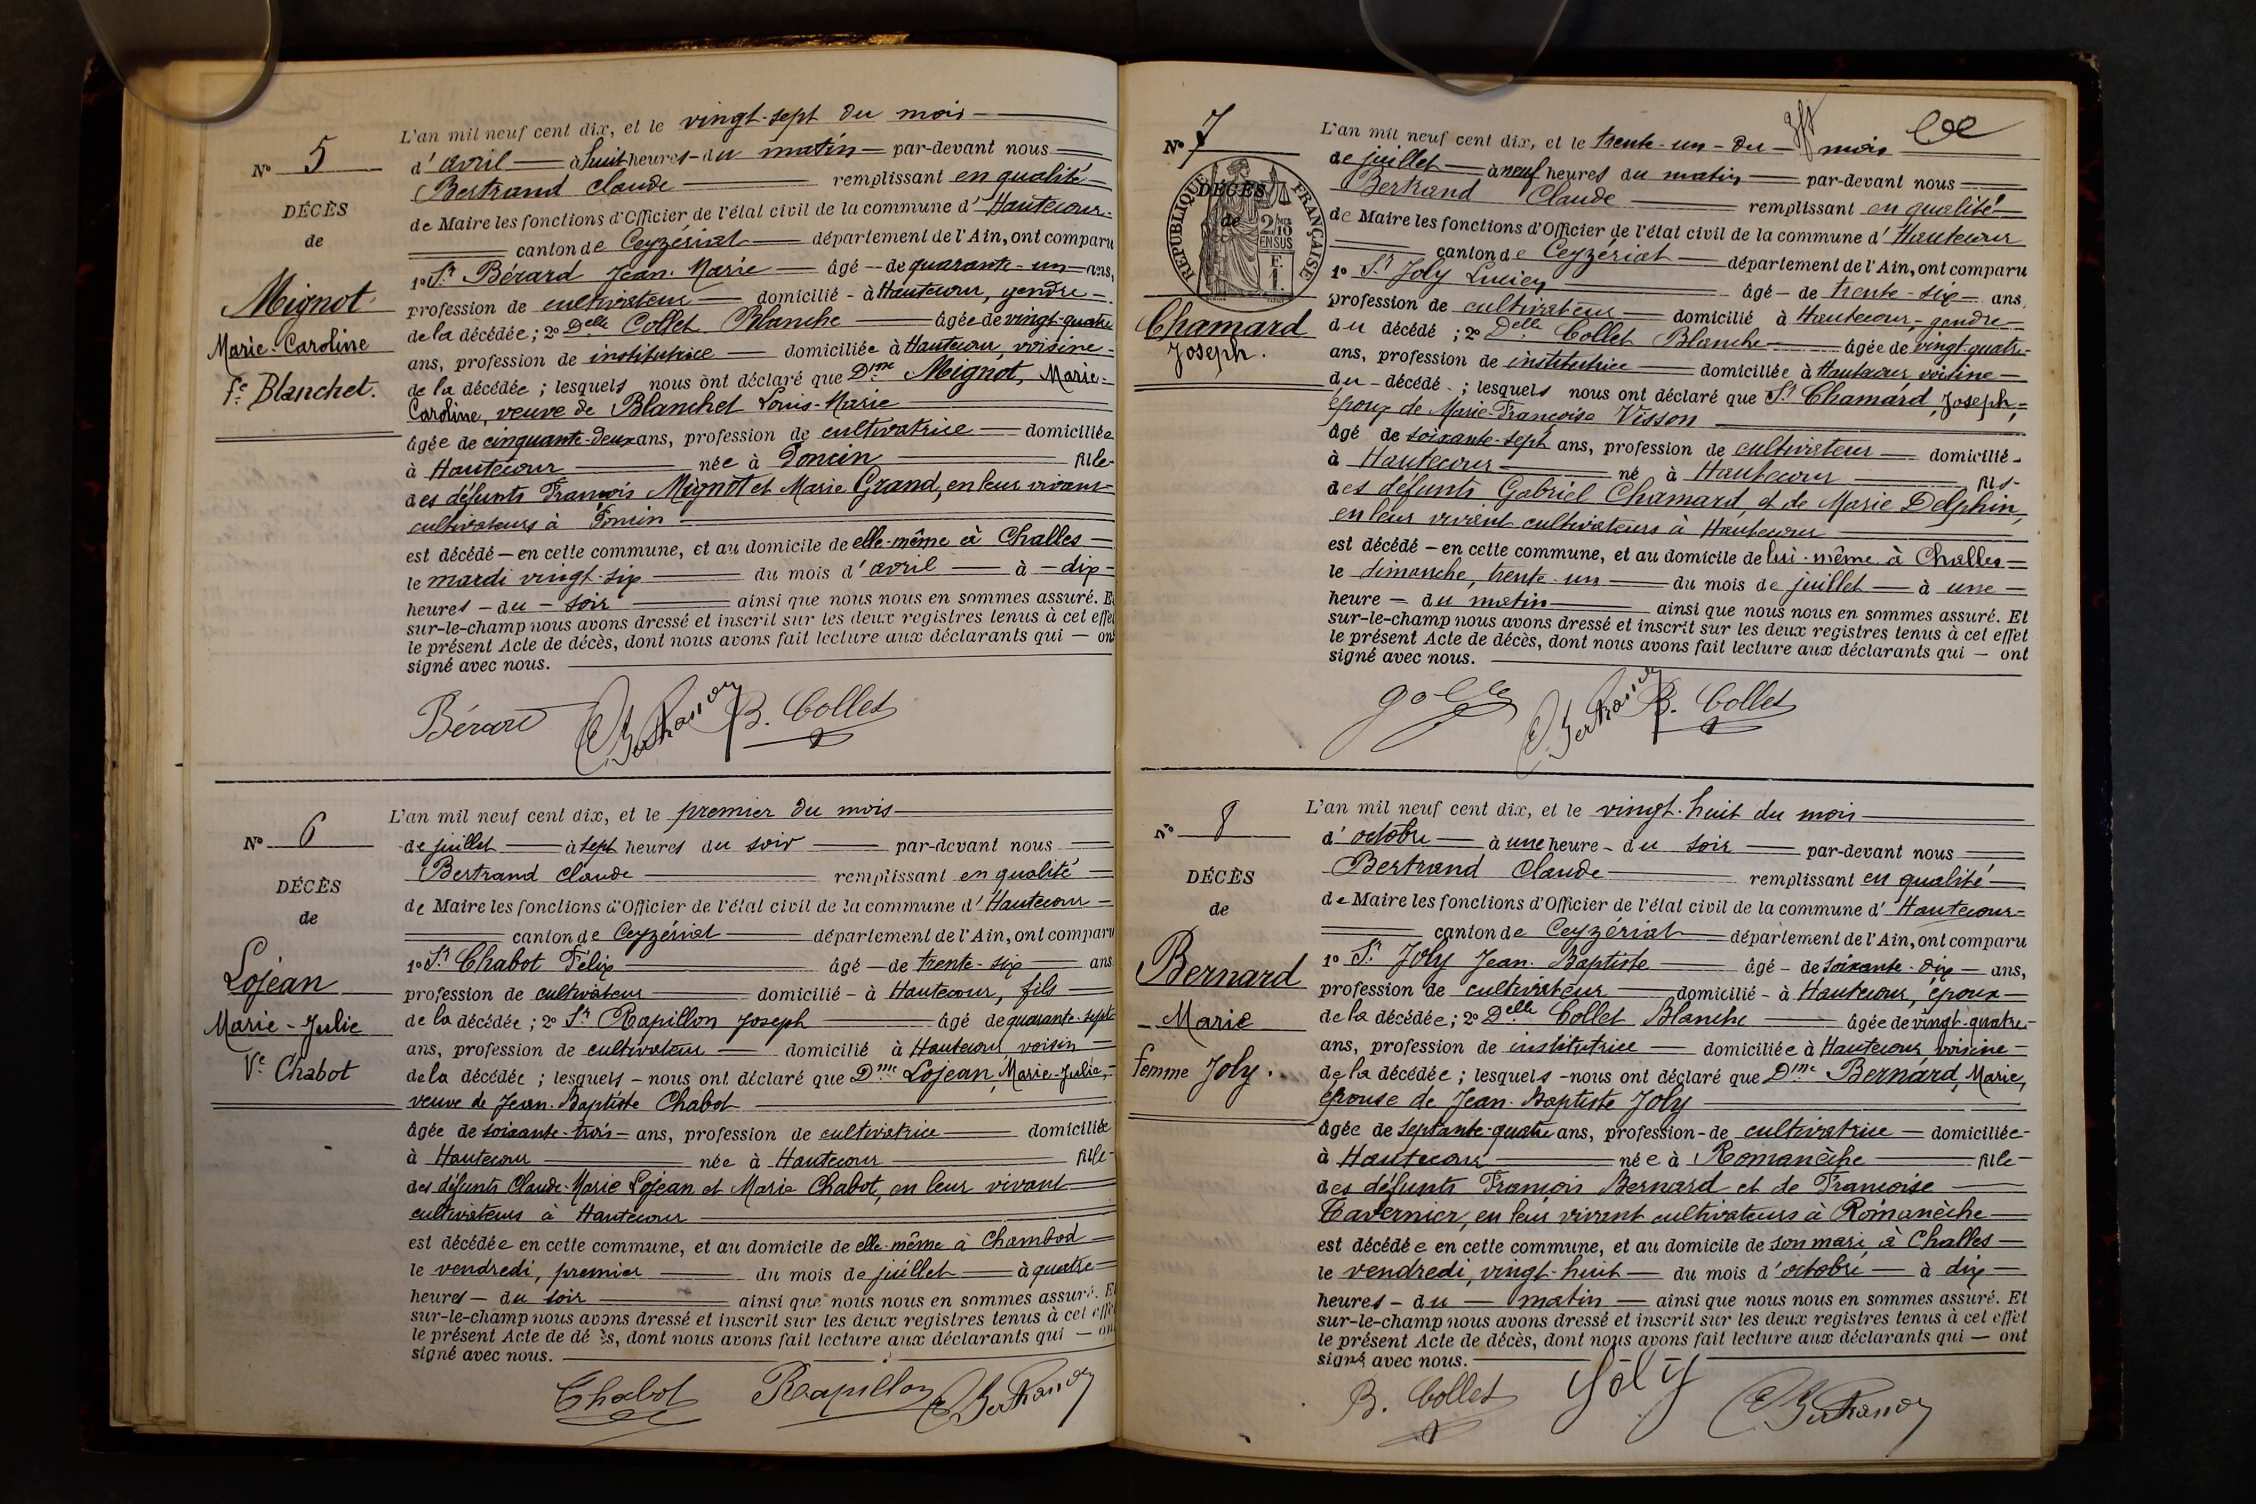 N° 5
DÉCÈS
de
Mignot
Marie-Caroline
Vᵉ Blanchet.
L'an mil neuf cent dix, et le vingt-sept du mois
d'avril à huit heures du matin par-devant nous
Bertrand Claude remplissant en qualité
de Maire les fonctions d'Officier de l'état civil de la commune d'Hautecour
canton de Ceyzériat département de l'Ain, ont comparu
1° Sʳ Bérard Jean-Marie âgé de quarante-un ans,
profession de cultivateur domicilié à Hautecour, gendre
de la décédée ; 2° Dᵉˡˡᵉ Collet Blanche âgée de vingt-quatre
ans, profession de institutrice domiciliée à Hautecour, voisine
de la décédée ; lesquels nous ont déclaré que Dᵐᵉ Mignot, Marie-
Caroline, veuve de Blanchet Louis-Marie
âgée de cinquante-deux ans, profession de cultivatrice domiciliée
à Hautecour née à Poncin fille
des défunts François Mignot et Marie Grand, en leur vivant
cultivateurs à Poncin
est décédé en cette commune, et au domicile de elle-même à Challes
le mardi vingt-six du mois d'avril à dix
heures du soir ainsi que nous nous en sommes assuré. Et
sur-le-champ nous avons dressé et inscrit sur les deux registres tenus à cet effet
le présent Acte de décès, dont nous avons fait lecture aux déclarants qui ont
signé avec nous.
Bérard C. Bertrand B. Collet
N° 6
DÉCÈS
de
Lojean
Marie-Julie
Vᵉ Chabot
L'an mil neuf cent dix, et le premier du mois
de juillet à sept heures du soir par-devant nous
Bertrand Claude remplissant en qualité
de Maire les fonctions d'Officier de l'état civil de la commune d'Hautecour
canton de Ceyzériat département de l'Ain, ont comparu
1° Sʳ Chabot Félix âgé de trente-six ans
profession de cultivateur domicilié à Hautecour, fils
de la décédée ; 2° Sʳ Rapillon Joseph âgé de quarante-sept
ans, profession de cultivateur domicilié à Hautecour, voisin
de la décédée ; lesquels nous ont déclaré que Dᵐᵉ Lojean, Marie-Julie,
veuve de Jean-Baptiste Chabot
âgée de soixante-trois ans, profession de cultivatrice domiciliée
à Hautecour née à Hautecour fille
des défunts Claude-Marie Lojean et Marie Chabot, en leur vivant
cultivateurs à Hautecour
est décédée en cette commune, et au domicile de elle-même à Chambod
le vendredi, premier du mois de juillet à quatre
heures du soir ainsi que nous nous en sommes assuré. Et
sur-le-champ nous avons dressé et inscrit sur les deux registres tenus à cet effet
le présent Acte de décès, dont nous avons fait lecture aux déclarants qui ont
signé avec nous.
Chabot Rapillon C. Bertrand
N° 7
DÉCÈS
de
RÉPUBLIQUE FRANÇAISE
2/10
EN SUS
Chamard
Joseph.
L'an mil neuf cent dix, et le trente-un du mois
de juillet à neuf heures du matin par-devant nous
Bertrand Claude remplissant en qualité
de Maire les fonctions d'Officier de l'état civil de la commune d'Hautecour
canton de Ceyzériat département de l'Ain, ont comparu
1° Sʳ Joly Lucien âgé de trente-six ans,
profession de cultivateur domicilié à Hautecour, gendre
du décédé ; 2° Dᵉˡˡᵉ Collet Blanche âgée de vingt-quatre
ans, profession de institutrice domiciliée à Hautecour, voisine
du décédé ; lesquels nous ont déclaré que Sʳ Chamard, Joseph,
époux de Marie-Françoise Visson
âgé de soixante-sept ans, profession de cultivateur domicilié
à Hautecour né à Hautecour fils
des défunts Gabriel Chamard, et de Marie Delphin,
en leur vivant cultivateurs à Hautecour
est décédé en cette commune, et au domicile de lui-même à Challes
le dimanche, trente-un du mois de juillet à une
heure du matin ainsi que nous nous en sommes assuré. Et
sur-le-champ nous avons dressé et inscrit sur les deux registres tenus à cet effet
le présent Acte de décès, dont nous avons fait lecture aux déclarants qui ont
signé avec nous.
Joly C. Bertrand B. Collet
N° 8
DÉCÈS
de
Bernard
Marie
femme Joly.
L'an mil neuf cent dix, et le vingt-huit du mois
d'octobre à une heure du soir par-devant nous
Bertrand Claude remplissant en qualité
de Maire les fonctions d'Officier de l'état civil de la commune d'Hautecour
canton de Ceyzériat département de l'Ain, ont comparu
1° Sʳ Joly Jean-Baptiste âgé de soixante-dix ans,
profession de cultivateur domicilié à Hautecour, époux
de la décédée ; 2° Dᵉˡˡᵉ Collet Blanche âgée de vingt-quatre
ans, profession de institutrice domiciliée à Hautecour, voisine
de la décédée ; lesquels nous ont déclaré que Dᵐᵉ Bernard, Marie,
épouse de Jean-Baptiste Joly
âgée de septante-quatre ans, profession de cultivatrice domiciliée
à Hautecour née à Romanèche fille
des défunts François Bernard et de Françoise
Tavernier, en leur vivant cultivateurs à Romanèche
est décédée en cette commune, et au domicile de son mari, à Challes
le vendredi, vingt-huit du mois d'octobre à dix
heures du matin ainsi que nous nous en sommes assuré. Et
sur-le-champ nous avons dressé et inscrit sur les deux registres tenus à cet effet
le présent Acte de décès, dont nous avons fait lecture aux déclarants qui ont
signé avec nous.
B. Collet Joly C. Bertrand